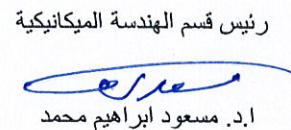 رئيس قسم الهندسة الميكانيكية
ا.د. مسعود ابراهيم محمد